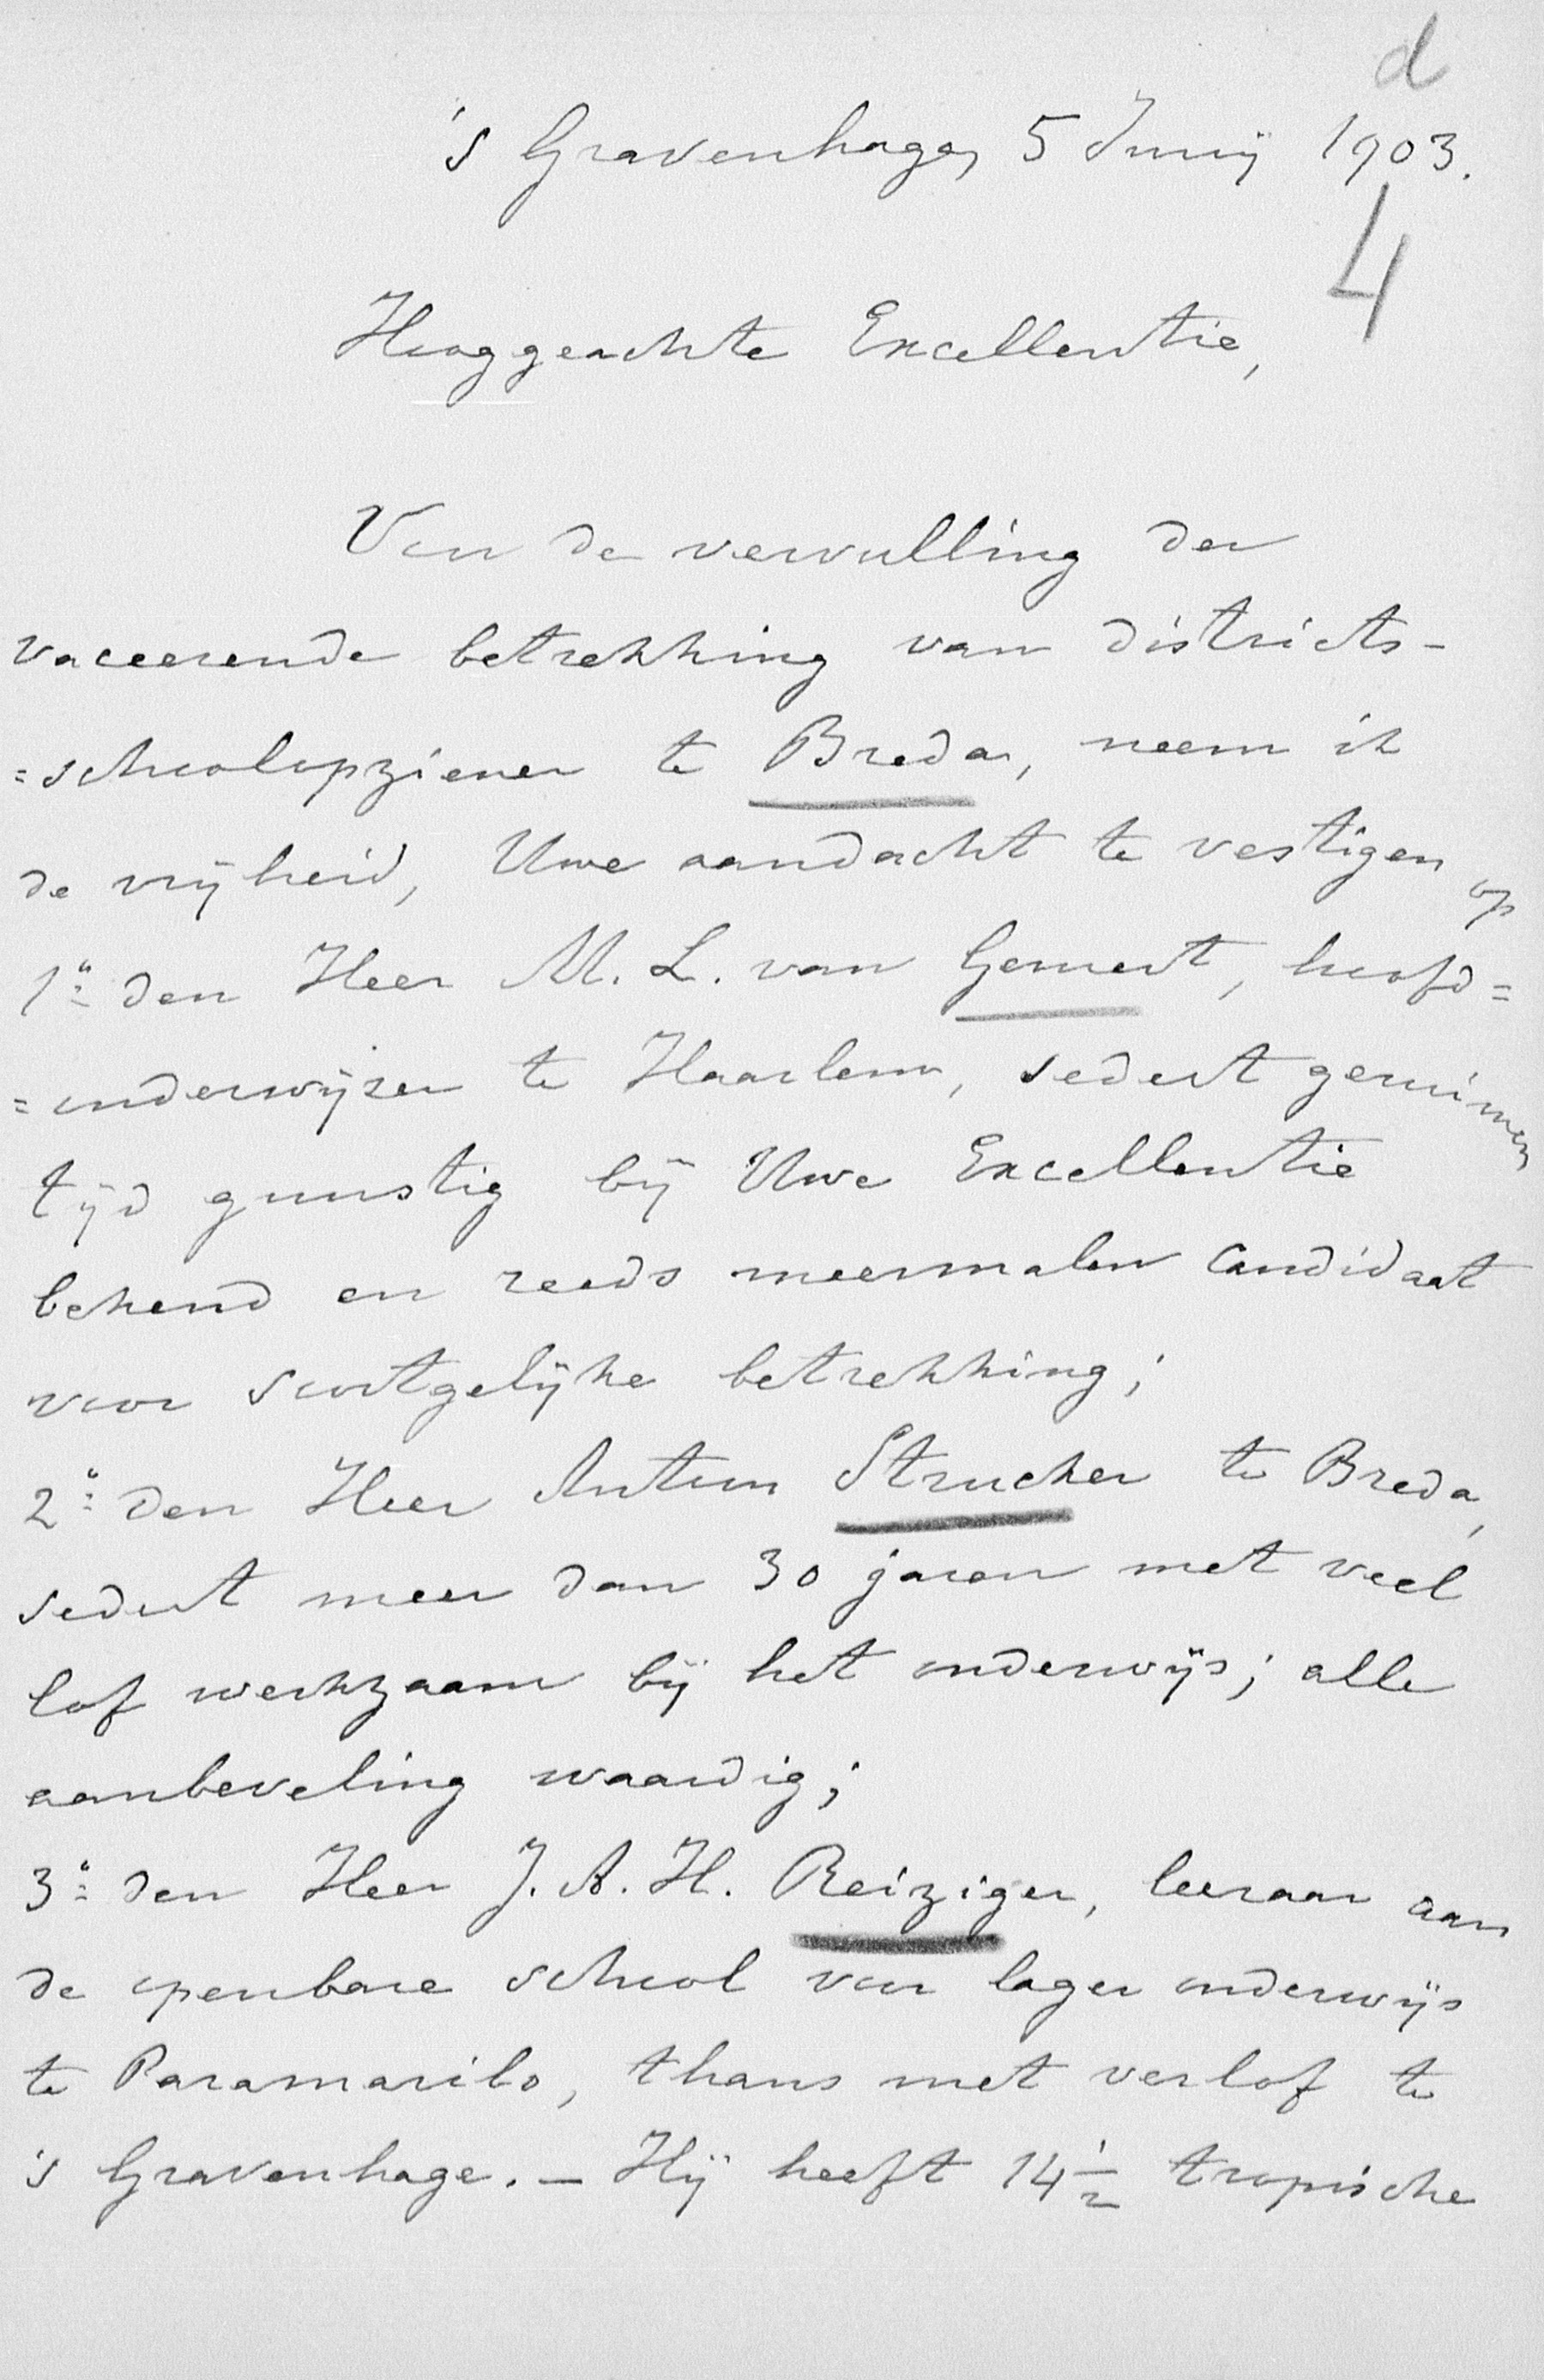 d
's Gravenhage, 5 Junij 1903.
4
Hooggeachte Excellentie,
Voor de vervulling der
vaceerende betrekking van districts-
=schoolopziener te Breda, neem ik
de vrijheid, Uwe aandacht te vestigen op
1° den Heer M. L. van Gemert, hoofd=
=onderwijzer te Haarlem, sedert geruimen
tijd gunstig bij Uwe Excellentie
bekend en reeds meermalen candidaat
voor soortgelijke betrekking;
2° den Heer Antoon Strucker te Breda,
sedert meer dan 30 jaren met veel
lof werkzaam bij het onderwijs; alle
aanbeveling waardig;
3° den Heer J. A. H. Reiziger, leeraar aan
de openbare school voor lager onderwijs
te Paramaribo, thans met verlof te
's Gravenhage. – Hij heeft 14 1/2 tropische